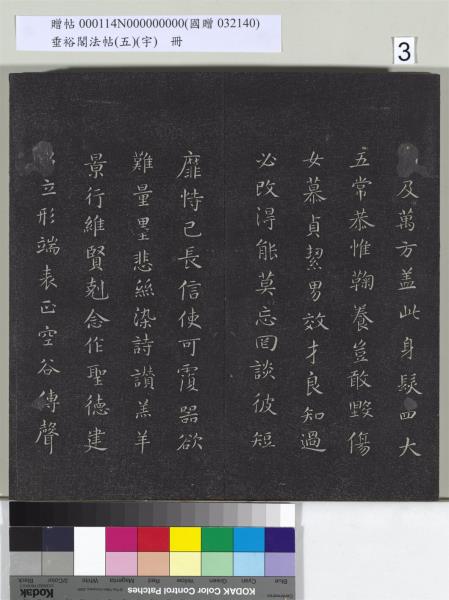 贈帖 000114N000000000(國贈 032140)
垂裕閣法帖(五)(宇) 冊
3
及萬方盖此身髮四大
五常恭惟鞠養豈敢毀傷
女慕貞絜男效才良知過
必改得能莫忘罔談彼短
靡恃己長信使可覆器欲
難量墨悲絲染詩讃羔羊
景行維賢剋念作聖德建
立形端表正空谷傳聲
Blue Cyan Green Yellow Red Magenta White 3/Color Black
Kodak
KODAK Color Control Patches